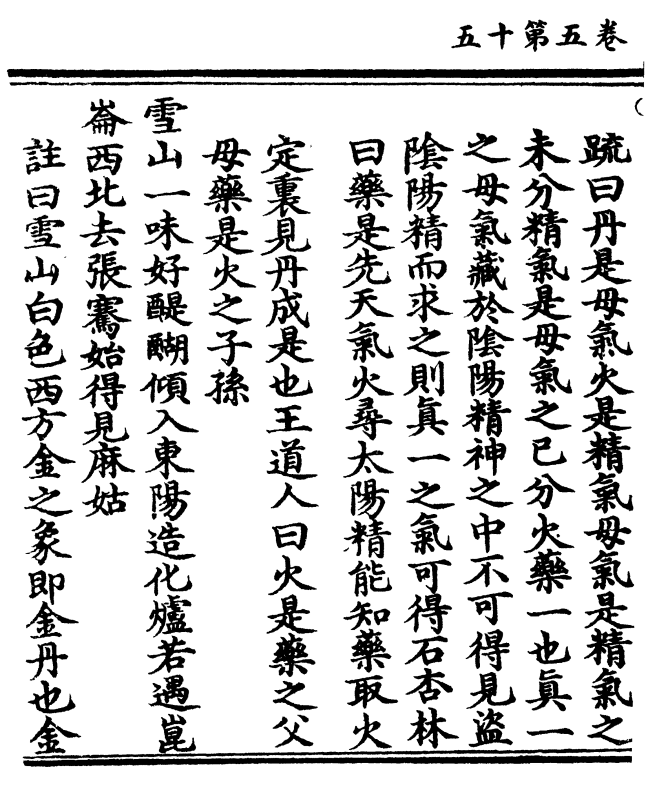 卷五第十五
疏曰丹是母氣火是精氣母氣是精氣之
未分精氣是母氣之已分火藥一也眞一
之母氣藏於陰陽精神之中不可得見盜
陰陽精而求之則眞一之氣可得石杏林
曰藥是先天氣火尋太陽精能知藥取火
定裏見丹成是也王道人曰火是藥之父
母藥是火之子孫
雪山一味好醍醐傾入東陽造化爐若過崑
崙西北去張騫始得見麻姑
註曰雪山白色西方金之象即金丹也金